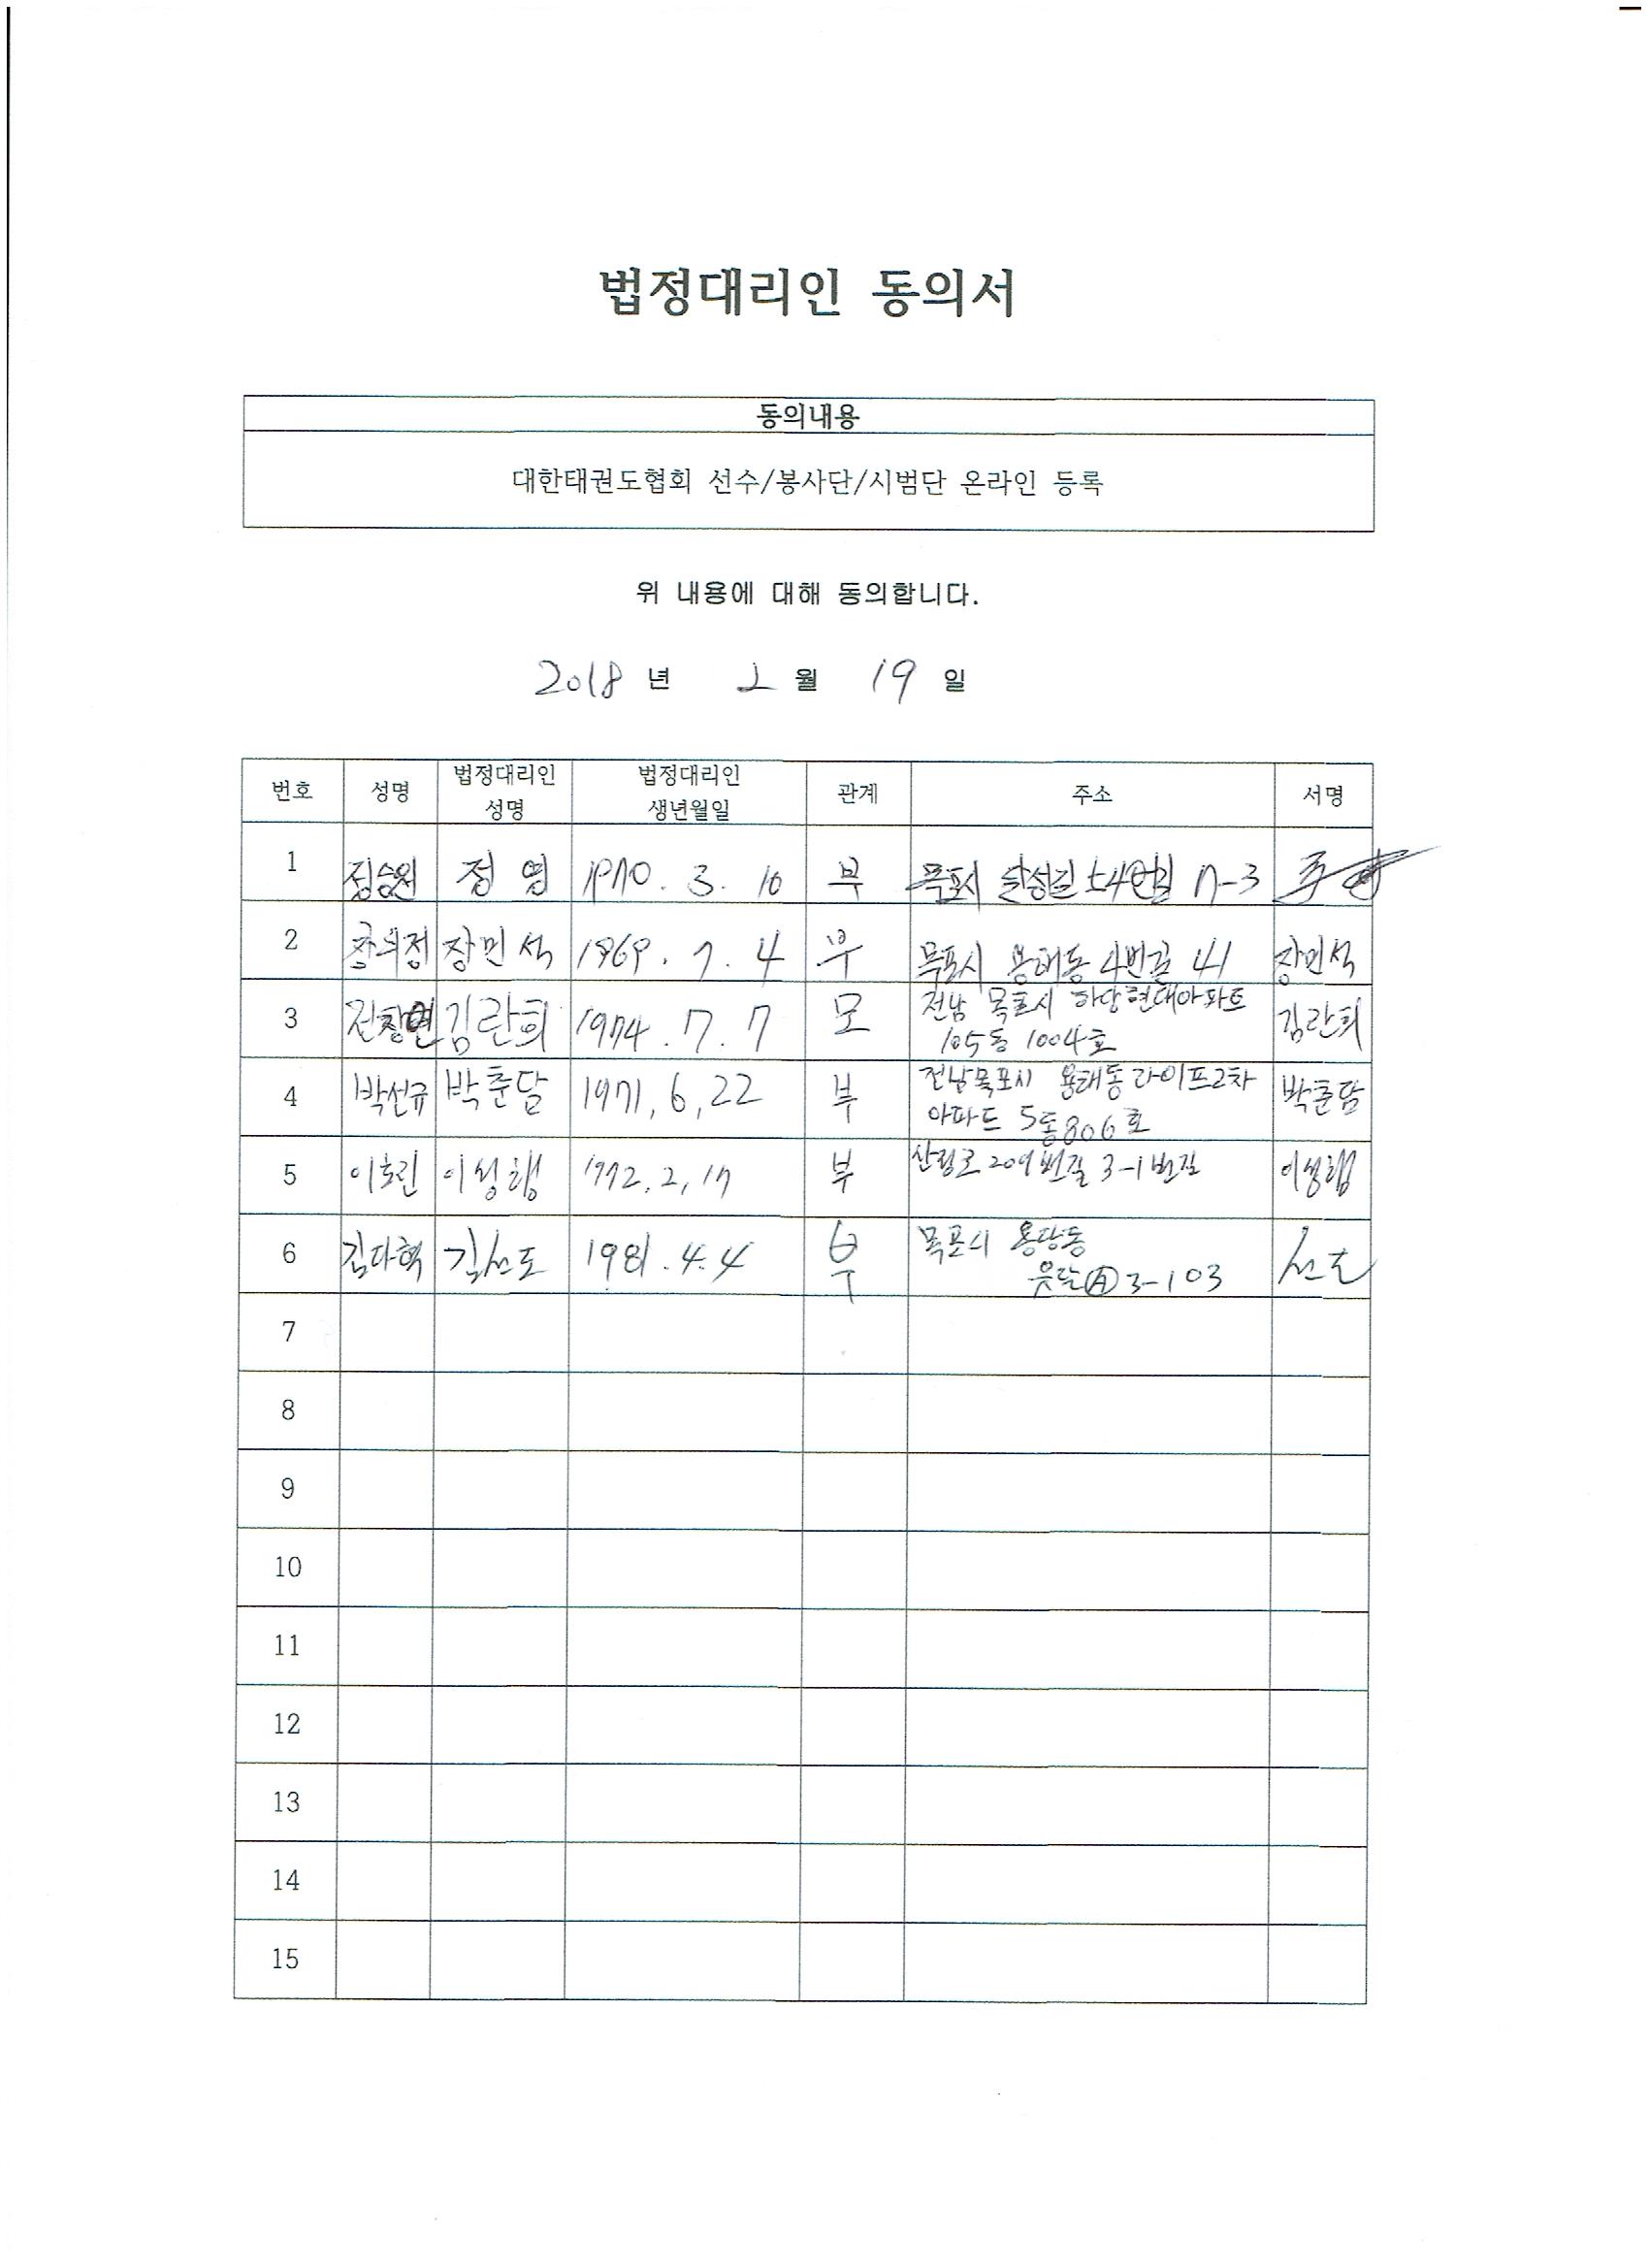 법정대리인 동의서
동의내용
대한태권도협회 선수/봉사단/시범단 온라인 등록
위 내용에 대해 동의합니다.
2018 년 2 월 19 일
번호 성명 법정대리인 성명 법정대리인 생년월일 관계 주소 서명
1 정승원 정 영 1970. 3. 10 부 목포시 54번길 17-3
2 장민석 1969. 7. 4 부 목포시 용해동 4번길 41 장민석
3 김란희 1974. 7. 7 모 전남 목포시 하당현대아파트 김란희
105동 1004호
4 박선규 박춘달 1971, 6, 22 부 전남목포시 용해동라이프2차 박춘달
아파트 5동806호
5 이호린 이성행 1972. 2, 17 부 209번길 3-1번지 이성행
6 김다혁 김선도 1981. 4. 4 부 목포시 용당동 선도
3-103
7
8
9
10
11
12
13
14
15